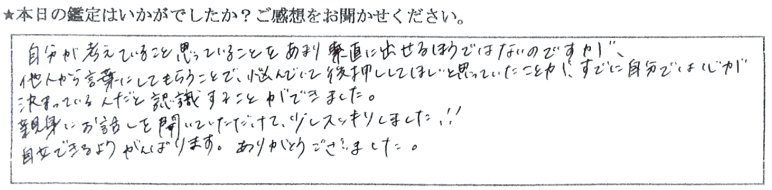 ★本日の鑑定はいかがでしたか？ご感想をお聞かせください。
自分が考えていること思っていることをあまり素直に出せるほうではないのですが、
他人から言葉にしてもらうことで、悩んでいて後押ししてほしいと思っていたことが、すでに自分では心が
決まっているんだと認識することができました。
親身にお話しを聞いていただけて、少しスッキリしました!!
自立できるようがんばります。ありがとうございました。